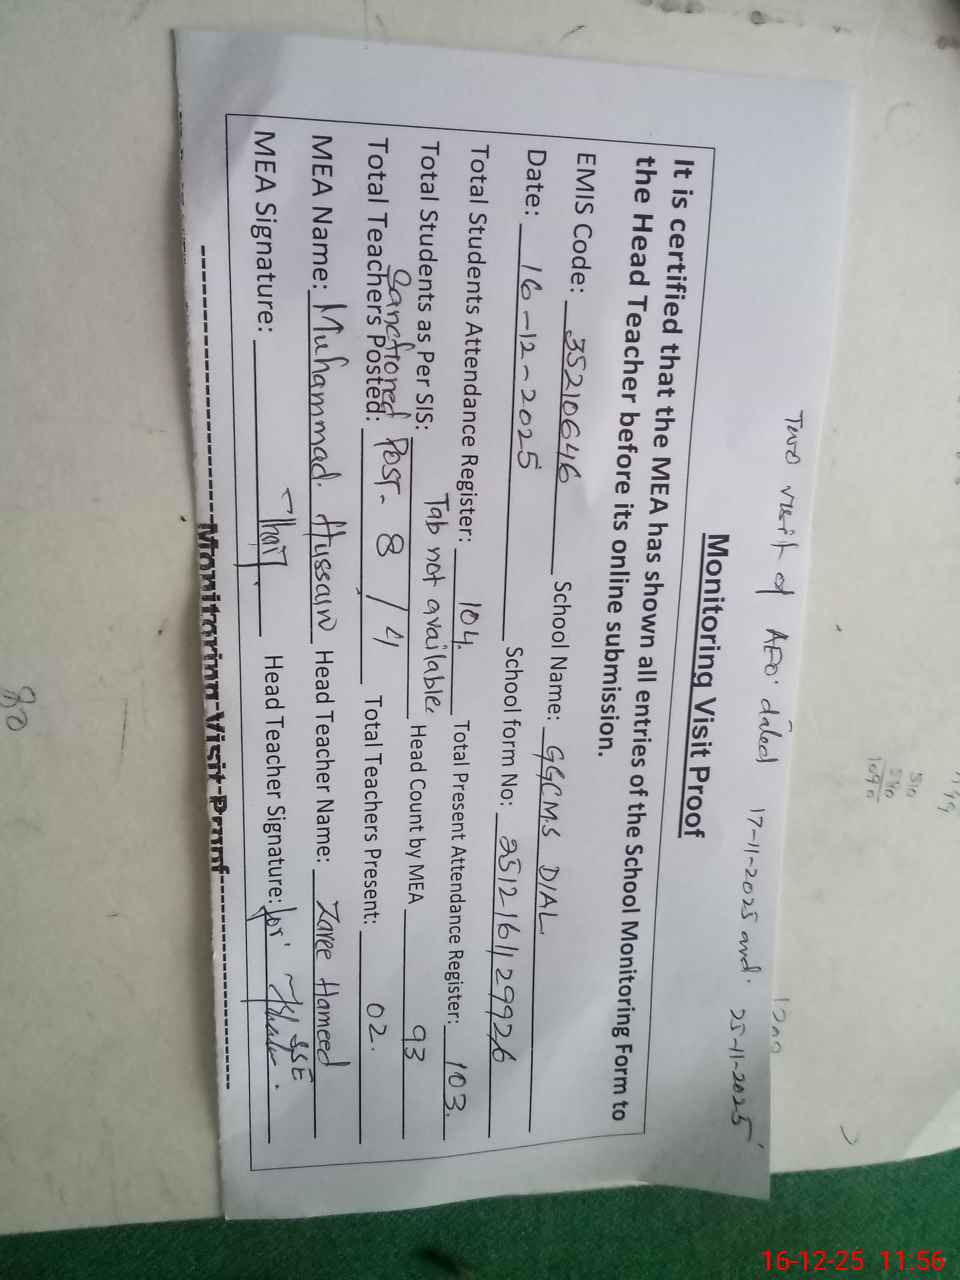 Two visit of AEO. dated 17-11-2025 and. 25-11-2025
Monitoring Visit Proof
It is certified that the MEA has shown all entries of the School Monitoring Form to
the Head Teacher before its online submission.
EMIS Code: 35210646 School Name: GGCMS DIAL
Date: 16-12-2025 School form No:
Total Students Attendance Register: 104. Total Present Attendance Register: 103.
Total Students as Per SIS: Tab not available. Head Count by MEA 93
Sanctioned Post. 8 / 4
Total Teachers Posted: Total Teachers Present: 02.
MEA Name: Muhammad. Hussain Head Teacher Name: Zaree Hameed
SSE
MEA Signature: Head Teacher Signature: for
Monitoring Visit Proof
510
1090
1200
80
16-12-25 11:56